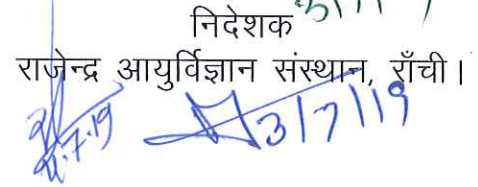 निदेशक
राजेन्द्र आयुर्विज्ञान संस्थान, राँची।
3/7/19